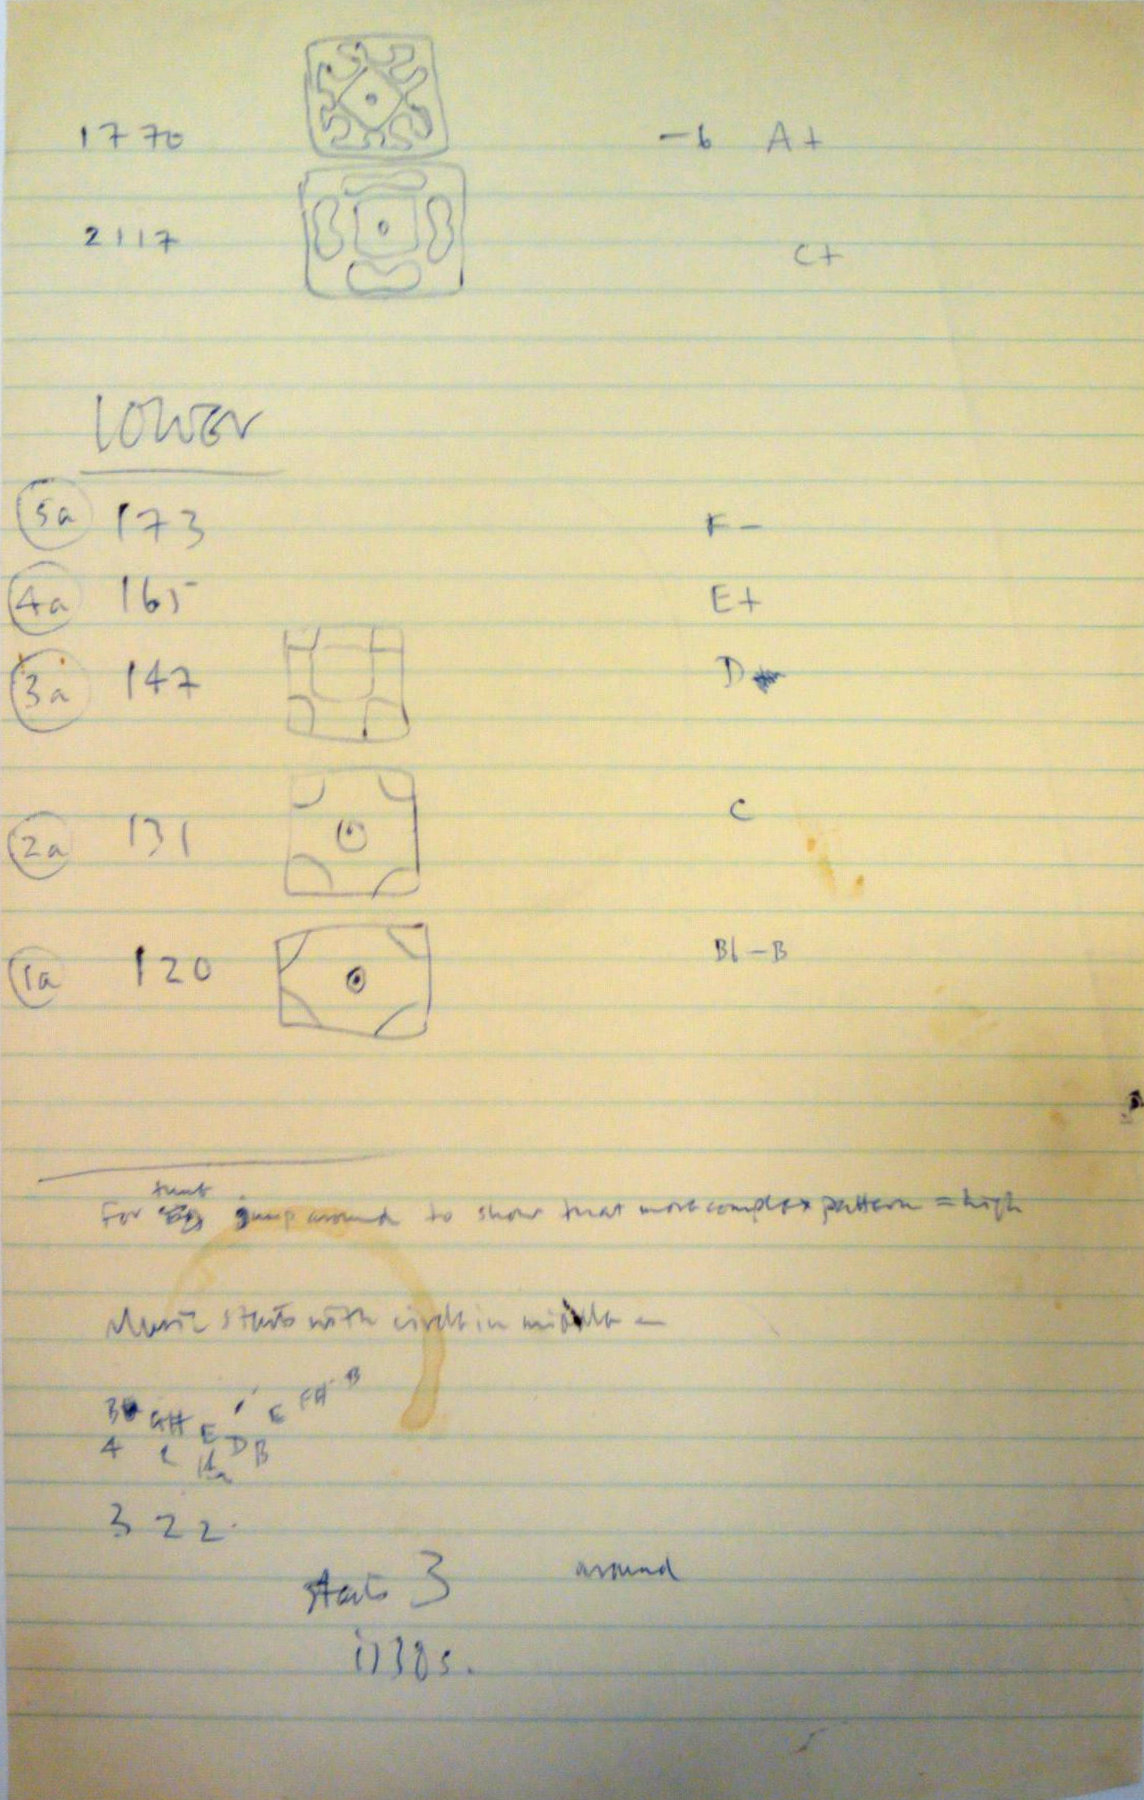 1770 -b A+
2117 C+
LOWER
5a 173 F-
4a 165 E+
3a 147 D
2a 131 C
1a 120 Bb-B
tune
For jump around to show that more complex pattern = high
Music starts with circle in middle -
3 G# E E F# B
4 C D B
3 2 2
starts 3 around